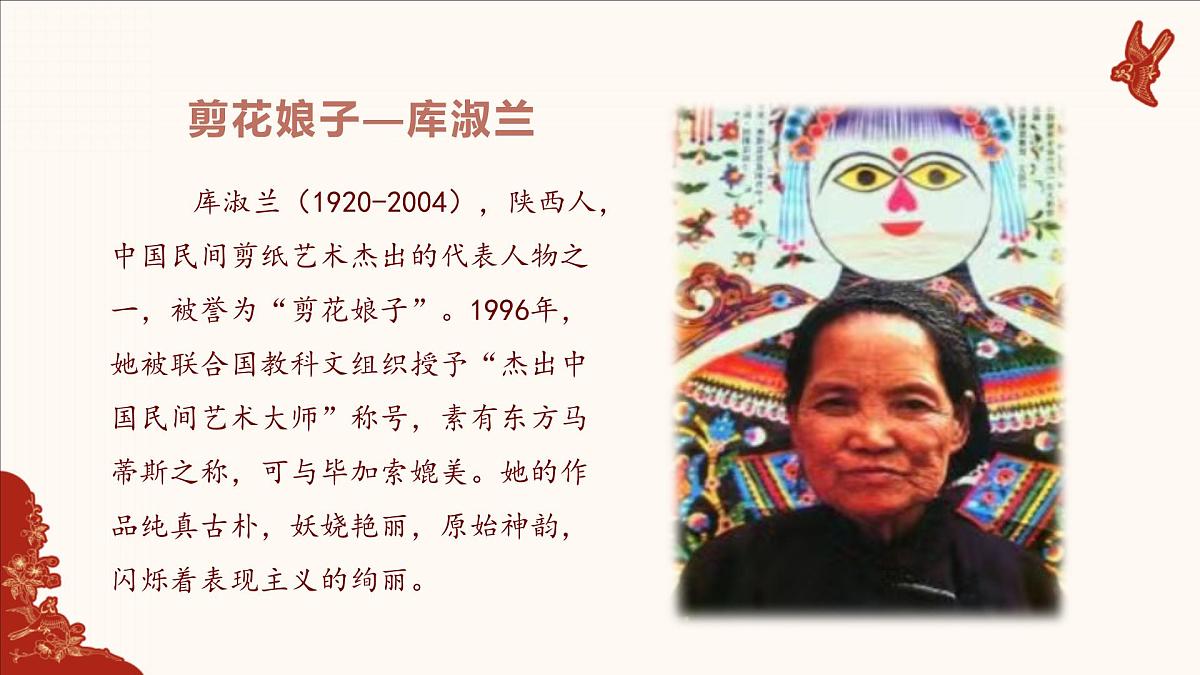 剪花娘子—库淑兰
库淑兰（1920-2004），陕西人，
中国民间剪纸艺术杰出的代表人物之
一，被誉为“剪花娘子”。1996年，
她被联合国教科文组织授予“杰出中
国民间艺术大师”称号，素有东方马
蒂斯之称，可与毕加索媲美。她的作
品纯真古朴，妖娆艳丽，原始神韵，
闪烁着表现主义的绚丽。